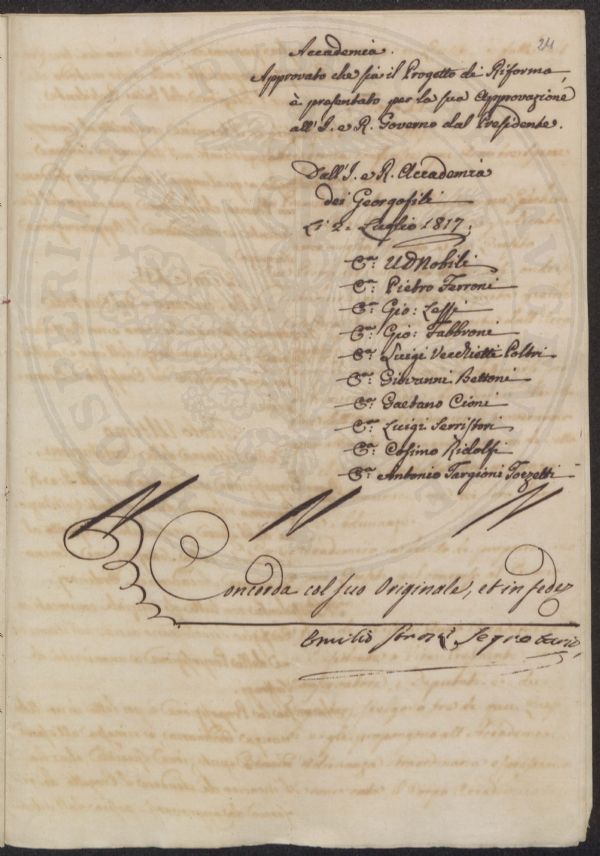 24
Accademia.
Approvato che sia il Progetto di Riforma,
è presentato per la sua Approvazione
all'I. e R. Governo dal Presidente.
Dall'I. e R. Accademia
dei Georgofili
Li 2. Luglio 1817.
Nobili
Pietro Ferroni
Gio: Lessi
Gio: Fabbroni
Luigi Vecchietti Poltri
Giovanni Bettoni
Gaetano Cioni
Luigi Serristori
Cosimo Ridolfi
Antonio Targioni Tozzetti
Concorda col suo Originale, et in fede
Emilio Strozzi Segretario